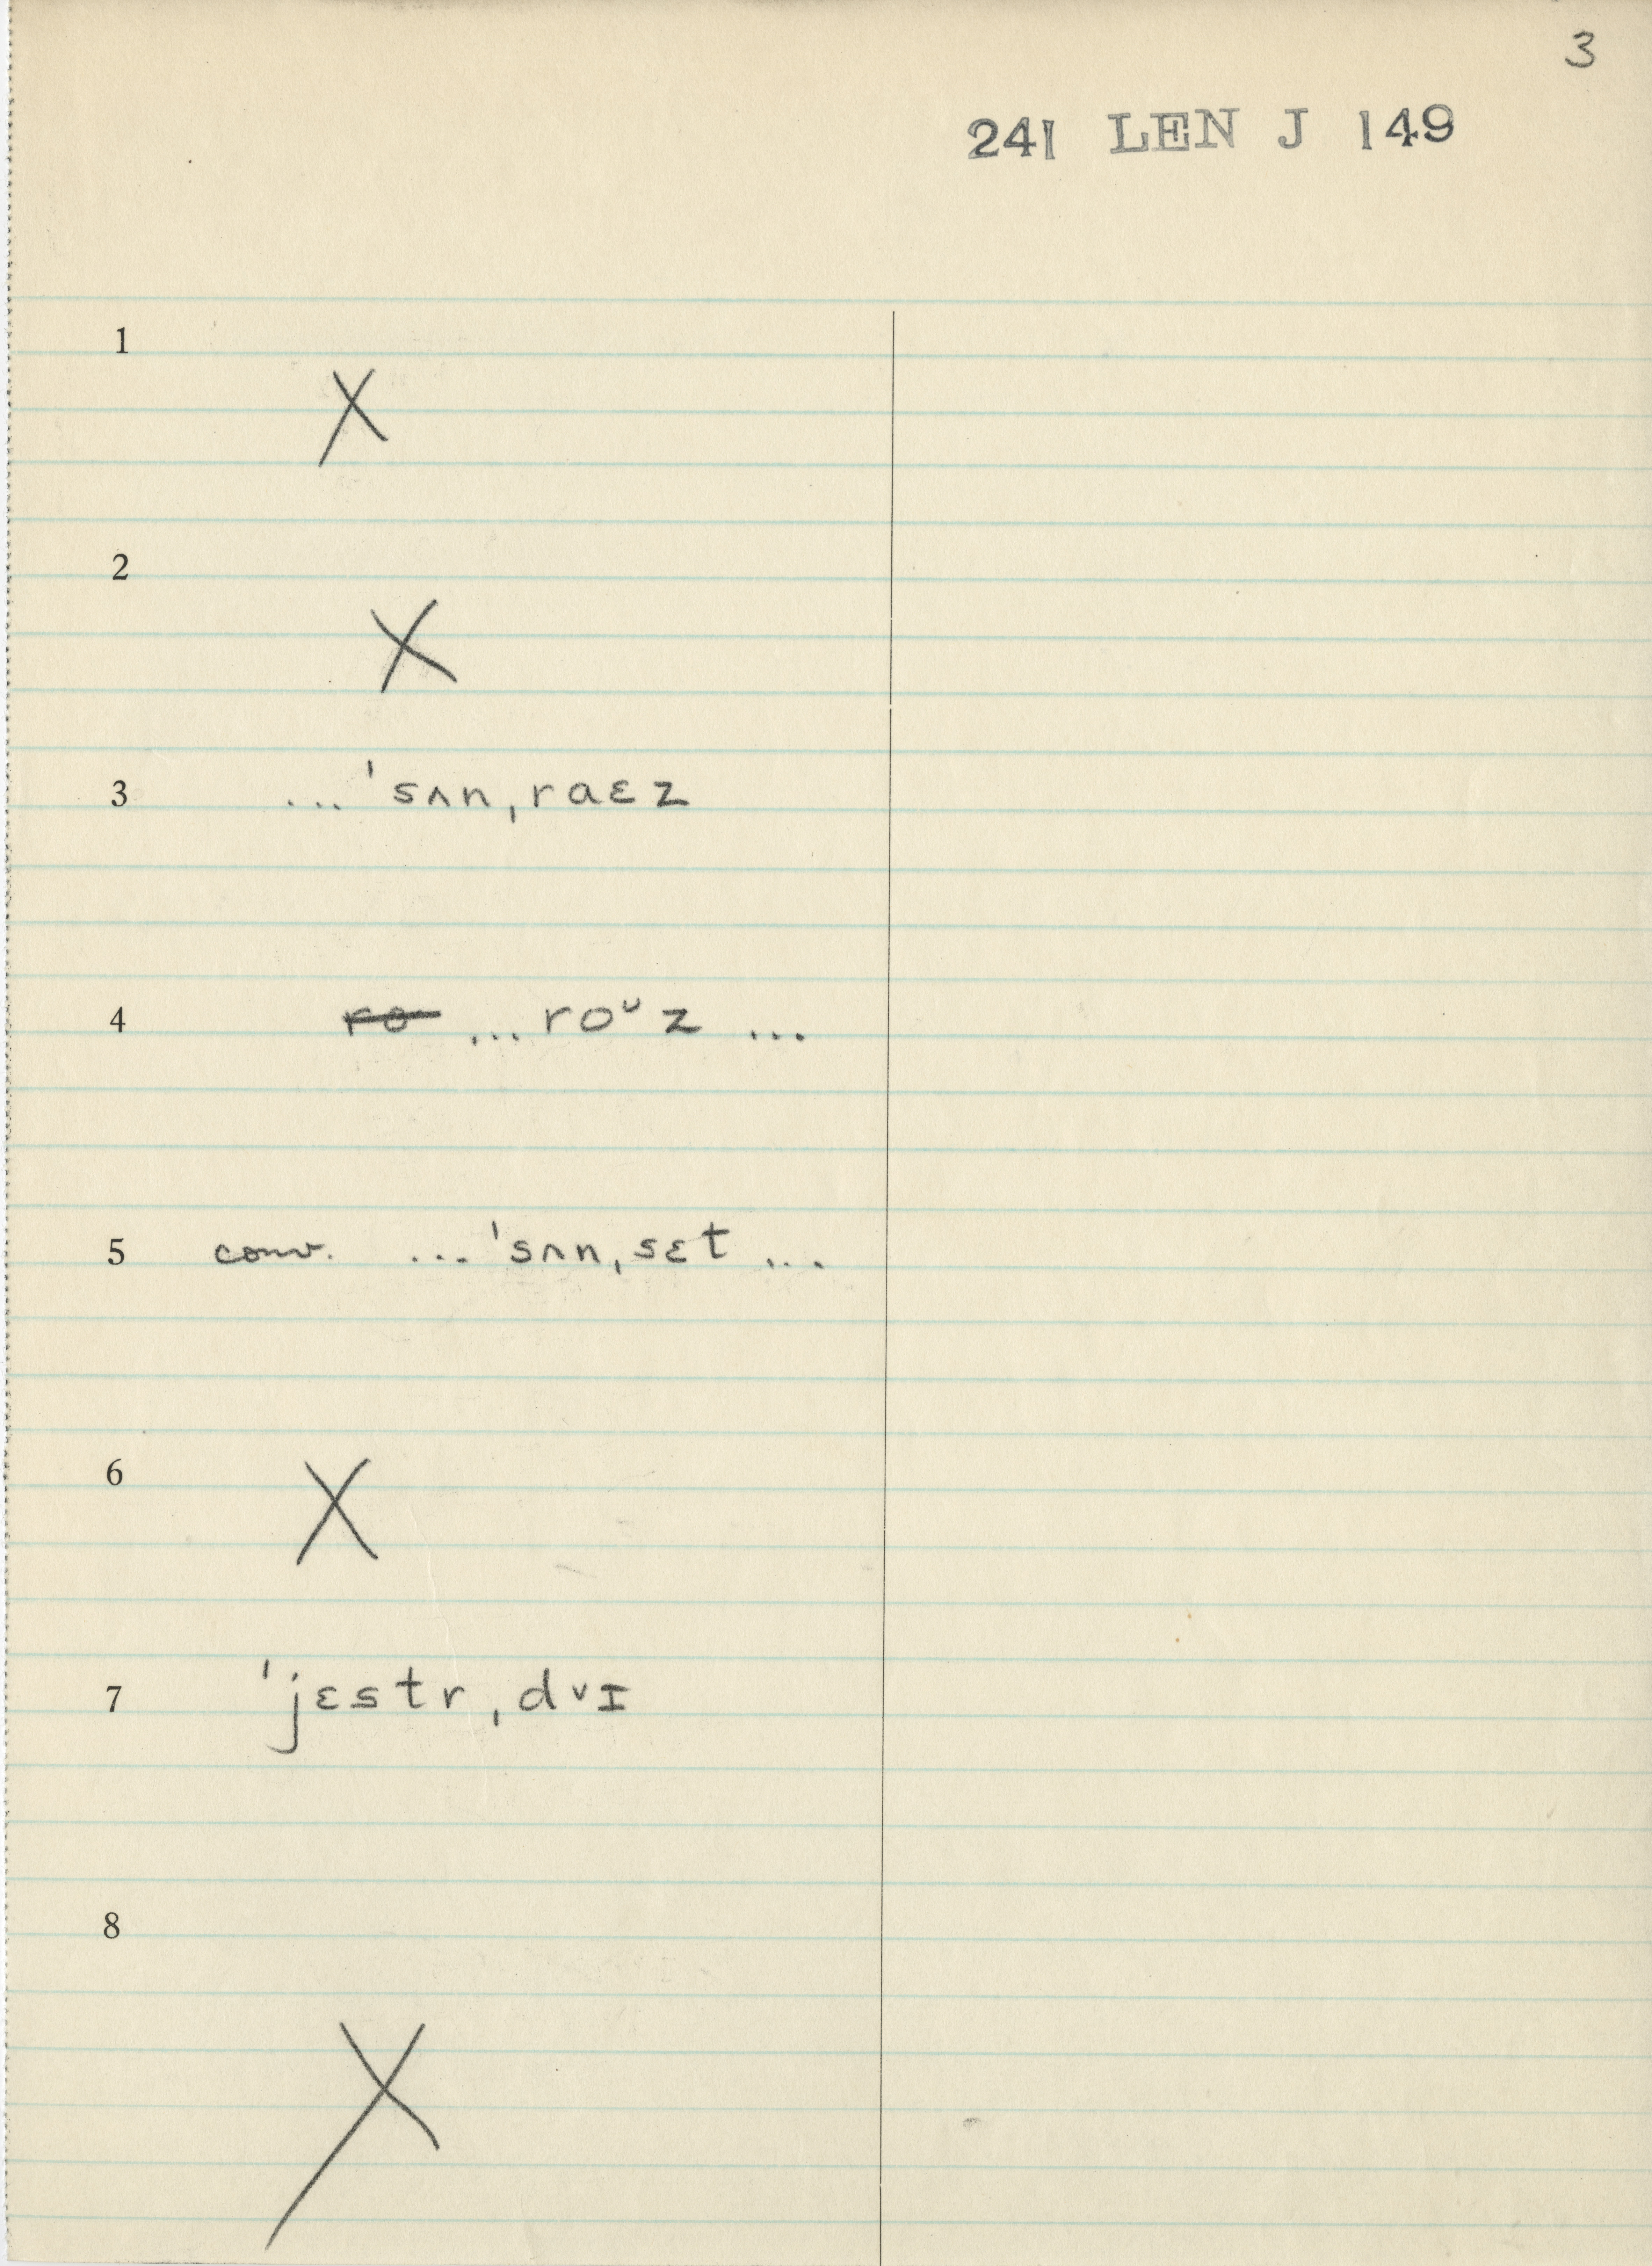 3
241 LEN J 149
1
X
2
X
3 ... ˈsʌnˌraɛz
4 r̶o̶ ... roᶸz ...
5 conv. ... ˈsʌnˌsɛt ...
6
X
7 ˈjɛstrˌdᵛɪ
8
X